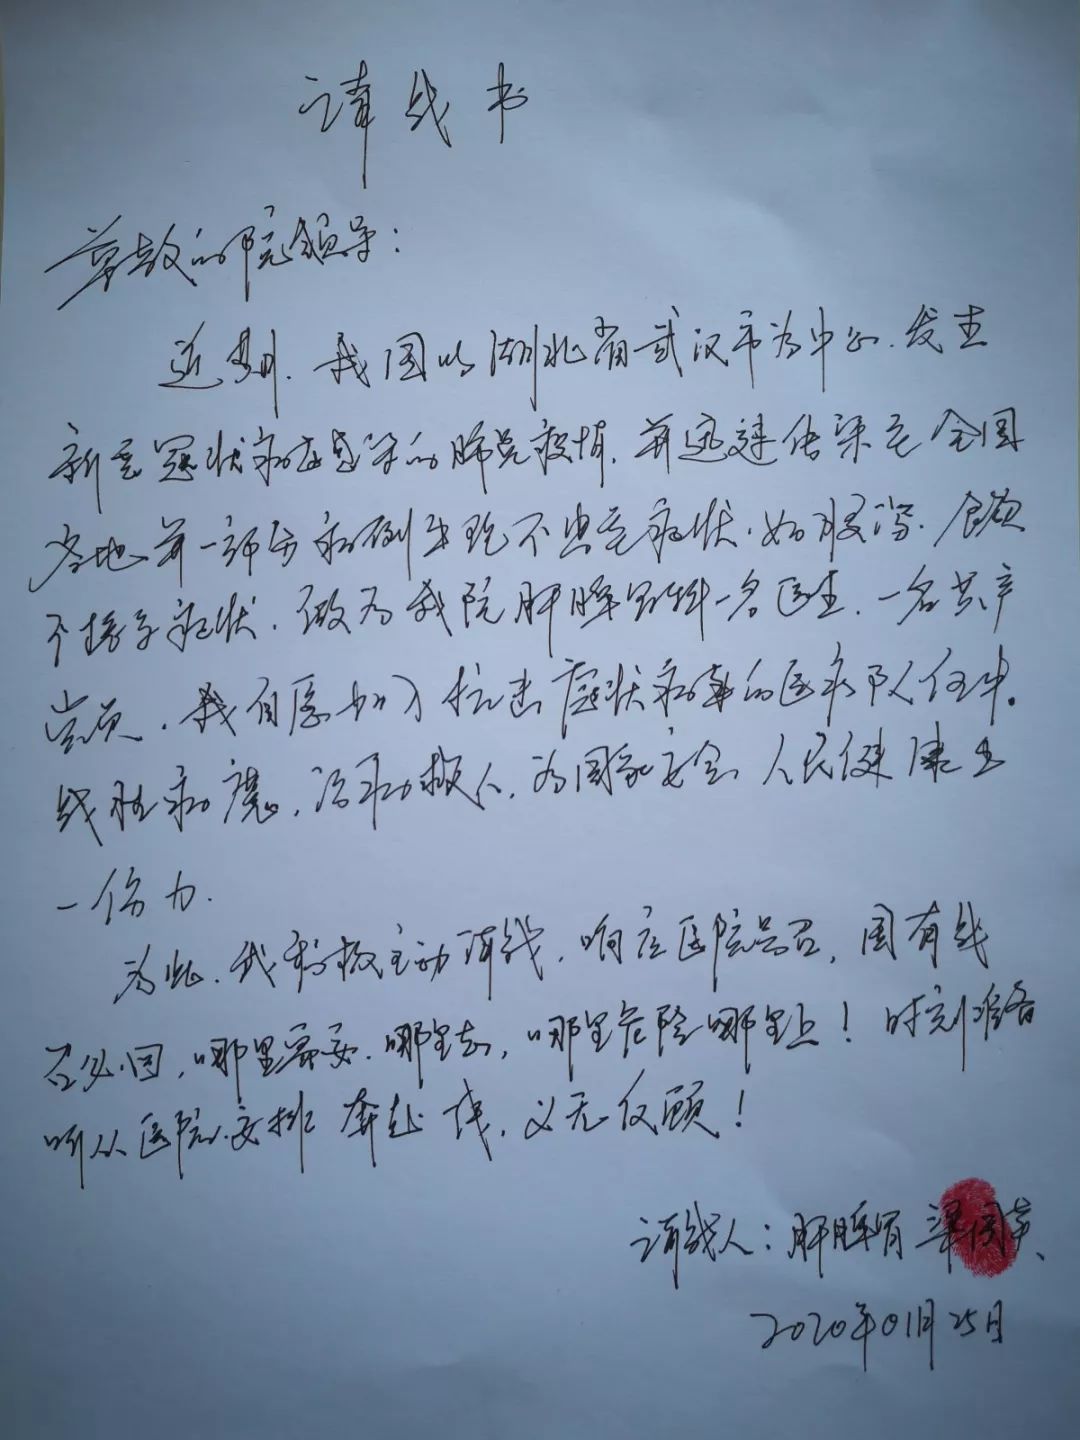 请战书
尊敬的院领导：
近期，我国以湖北省武汉市为中心，发生
新型冠状病毒感染的肺炎疫情，并迅速传染至全国
各地，并一部分病例出现不典型症状，如腹泻，食欲
不振等症状，做为我院肝脾胃科一名医生，一名共产
党员，我自愿加入抗击冠状病毒的医疗队伍中。
战胜病魔，治病救人，为国家安全 人民健康出
一份力．
为此，我积极主动请战，响应医院号召，国有战
召必回，哪里需要，哪里去，哪里危险哪里上！时刻准备
听从医院安排 奔赴一线，义无反顾！
请战人：肝脾胃 梁国英
2020年01月25日